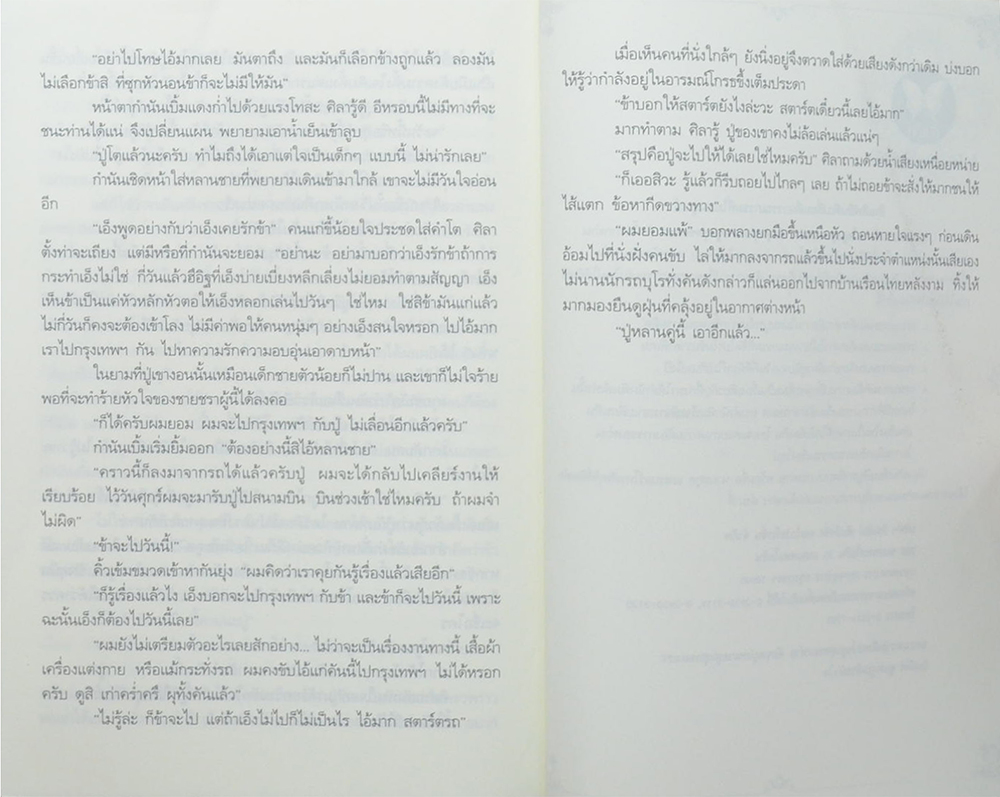 “อย่าไปโทษไอ้มากเลย มันตาถึง และมันก็เลือกข้างถูกแล้ว ลองมัน
ไม่เลือกข้าสิ ที่ซุกหัวนอนข้าก็จะไม่มีให้มัน”
หน้าตากำนันเบิ้มแดงก่ำไปด้วยแรงโทสะ ศิลารู้ดี อีหรอบนี้ไม่มีทางที่จะ
ชนะท่านได้แน่ จึงเปลี่ยนแผน พยายามเอาน้ำเย็นเข้าลูบ
“ปู่โตแล้วนะครับ ทำไมถึงได้เอาแต่ใจเป็นเด็กๆ แบบนี้ ไม่น่ารักเลย”
กำนันเชิดหน้าใส่หลานชายที่พยายามเดินเข้ามาใกล้ เขาจะไม่มีวันใจอ่อน
อีก
“เอ็งพูดอย่างกับว่าเอ็งเคยรักข้า” คนแก่ขี้น้อยใจประชดใส่คำโต ศิลา
ตั้งท่าจะเถียง แต่มีหรือที่กำนันจะยอม “อย่านะ อย่ามาบอกว่าเอ็งรักข้าถ้าการ
กระทำเอ็งไม่ใช่ กี่วันแล้วฮึอิฐที่เอ็งบ่ายเบี่ยงหลีกเลี่ยงไม่ยอมทำตามสัญญา เอ็ง
เห็นข้าเป็นแค่หัวหลักหัวตอให้เอ็งหลอกเล่นไปวันๆ ใช่ไหม ใช่สิข้ามันแก่แล้ว
ไม่กี่วันก็คงจะต้องเข้าโลง ไม่มีค่าพอให้คนหนุ่มๆ อย่างเอ็งสนใจหรอก ไปไอ้มาก
เราไปกรุงเทพฯ กัน ไปหาความรักความอบอุ่นเอาดาบหน้า”
ในยามที่ปู่เขางอนนั้นเหมือนเด็กชายตัวน้อยก็ไม่ปาน และเขาก็ไม่ใจร้าย
พอที่จะทำร้ายหัวใจของชายชราผู้นี้ได้ลงคอ
“ก็ได้ครับผมยอม ผมจะไปกรุงเทพฯ กับปู่ ไม่เลื่อนอีกแล้วครับ”
กำนันเบิ้มเริ่มยิ้มออก “ต้องอย่างนี้สิไอ้หลานชาย”
“คราวนี้ก็ลงมาจากรถได้แล้วครับปู่ ผมจะได้กลับไปเคลียร์งานให้
เรียบร้อย ไว้วันศุกร์ผมจะมารับปู่ไปสนามบิน บินช่วงเช้าใช่ไหมครับ ถ้าผมจำ
ไม่ผิด”
“ข้าจะไปวันนี้!”
คิ้วเข้มขมวดเข้าหากันยุ่ง “ผมคิดว่าเราคุยกันรู้เรื่องแล้วเสียอีก”
“ก็รู้เรื่องแล้วไง เอ็งบอกจะไปกรุงเทพฯ กับข้า และข้าก็จะไปวันนี้ เพราะ
ฉะนั้นเอ็งก็ต้องไปวันนี้เลย”
“ผมยังไม่เตรียมตัวอะไรเลยสักอย่าง... ไม่ว่าจะเป็นเรื่องงานทางนี้ เสื้อผ้า
เครื่องแต่งกาย หรือแม้กระทั่งรถ ผมคงขับไอ้แก่คันนี้ไปกรุงเทพฯ ไม่ได้หรอก
ครับ ดูสิ เก่าคร่ำครึ ผุทั้งคันแล้ว”
“ไม่รู้ล่ะ ก็ข้าจะไป แต่ถ้าเอ็งไม่ไปก็ไม่เป็นไร ไอ้มาก สตาร์ตรถ”
เมื่อเห็นคนที่นั่งใกล้ๆ ยังนิ่งอยู่จึงตวาดใส่ด้วยเสียงดังกว่าเดิม บ่งบอก
ให้รู้ว่ากำลังอยู่ในอารมณ์โกรธขึ้งเต็มประดา
“ข้าบอกให้สตาร์ตยังไงล่ะวะ สตาร์ตเดี๋ยวนี้เลยไอ้มาก”
มากทำตาม ศิลารู้ ปู่ของเขาคงไม่ล้อเล่นแล้วแน่ๆ
“สรุปคือปู่จะไปให้ได้เลยใช่ไหมครับ” ศิลาถามด้วยน้ำเสียงเหนื่อยหน่าย
“ก็เออสิวะ รู้แล้วก็รีบถอยไปไกลๆ เลย ถ้าไม่ถอยข้าจะสั่งให้มากชนให้
ไส้แตก ข้อหากีดขวางทาง”
“ผมยอมแพ้” บอกพลางยกมือขึ้นเหนือหัว ถอนหายใจแรงๆ ก่อนเดิน
อ้อมไปที่นั่งฝั่งคนขับ ไล่ให้มากลงจากรถแล้วขึ้นไปนั่งประจำตำแหน่งนั้นเสียเอง
ไม่นานนักรถบุโรทั่งคันดังกล่าวก็แล่นออกไปจากบ้านเรือนไทยหลังงาม ทิ้งให้
มากมองยืนดูฝุ่นที่คลุ้งอยู่ในอากาศต่างหน้า
“ปู่หลานคู่นี้ เอาอีกแล้ว...”